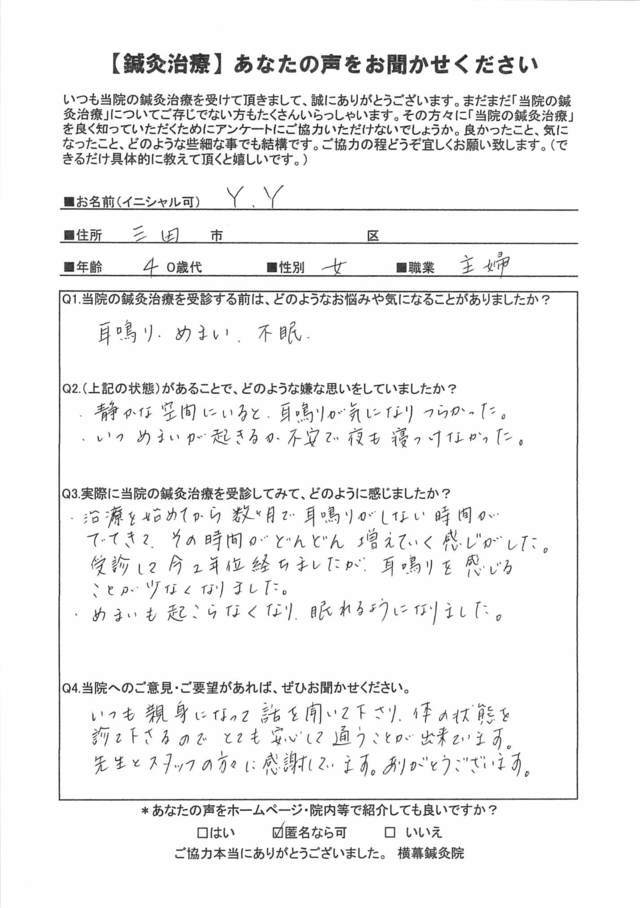 【鍼灸治療】 あなたの声をお聞かせください
いつも当院の鍼灸治療を受けて頂きまして、誠にありがとうございます。まだまだ「当院の鍼
灸治療」についてご存じでない方もたくさんいらっしゃいます。その方々に「当院の鍼灸治療」
を良く知っていただくためにアンケートにご協力いただけないでしょうか。良かったこと、気に
なったこと、どのような些細な事でも結構です。ご協力の程どうぞ宜しくお願い致します。(で
きるだけ具体的に教えて頂くと嬉しいです。)
■お名前(イニシャル可) Y.Y
■住所 三田 市 区
■年齢 40歳代 ■性別 女 ■職業 主婦
Q1.当院の鍼灸治療を受診する前は、どのようなお悩みや気になることがありましたか?
耳鳴り、めまい、不眠.
Q2.(上記の状態)があることで、どのような嫌な思いをしていましたか?
・静かな空間にいると、耳鳴りが気になりつらかった。
・いつめまいが起きるか不安で夜も寝つけなかった。
Q3.実際に当院の鍼灸治療を受診してみて、どのように感じましたか?
・治療を始めてから数ヶ月で耳鳴りがしない時間が
でてきて、その時間がどんどん増えていく感じがした。
受診して今2年位経ちましたが、耳鳴りを感じる
ことが少なくなりました。
・めまいも起こらなくなり、眠れるようになりました。
Q4.当院へのご意見・ご要望があれば、ぜひお聞かせください。
いつも親身になって話を聞いて下さり、体の状態を
診て下さるのでとても安心して通うことが出来ています。
先生とスタッフの方々に感謝しています。ありがとうございます。
*あなたの声をホームページ・院内等で紹介しても良いですか?
□はい ☑匿名なら可 □ いいえ
ご協力本当にありがとうございました。 横幕鍼灸院